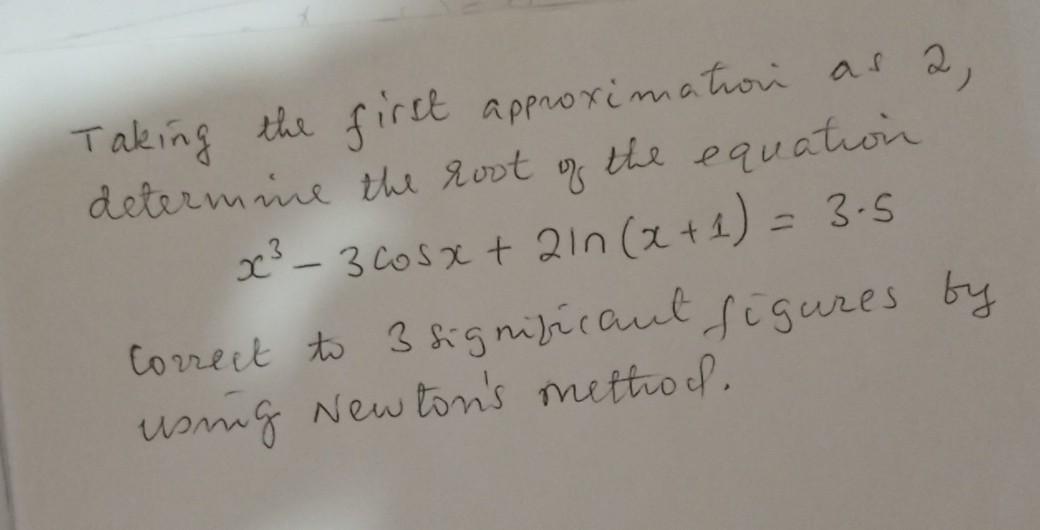 Taking the first approximation as 2,
determine the root of the equation
x³ - 3cosx + 2ln(x+1) = 3.5
Correct to 3 significant figures by
using Newton's method.